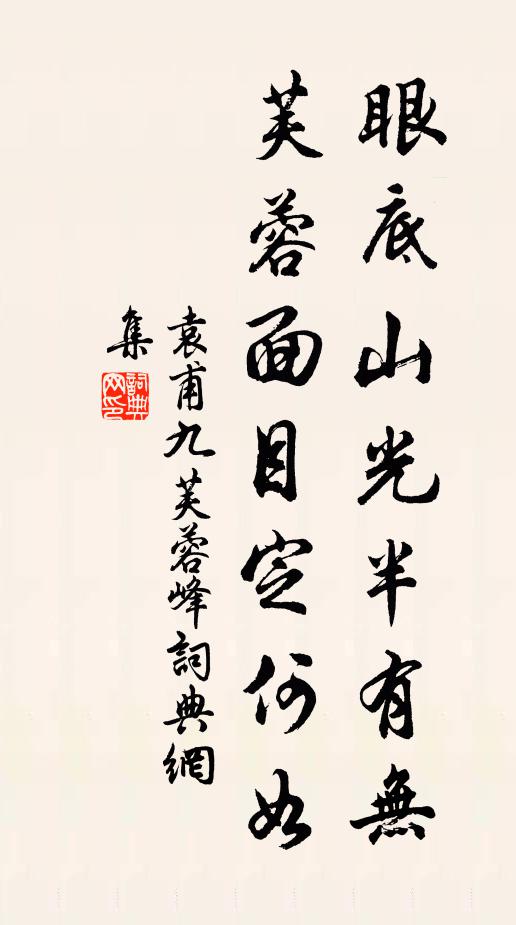 眼底山光半有無
芙蓉面目定何如
袁甫九芙蓉峰詞典網
集
詞典网印